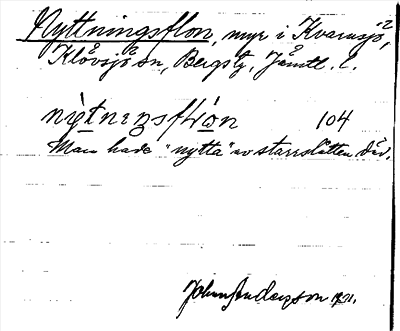 Nyttningsflon, myr i Kvarnsjö,
Klövsjö sn, Bergs tg, Jämtl. l.
nỳtnɪŋsfɫòn 104
Man hade "nytta" av starrslåtten där.
Johan Andersson